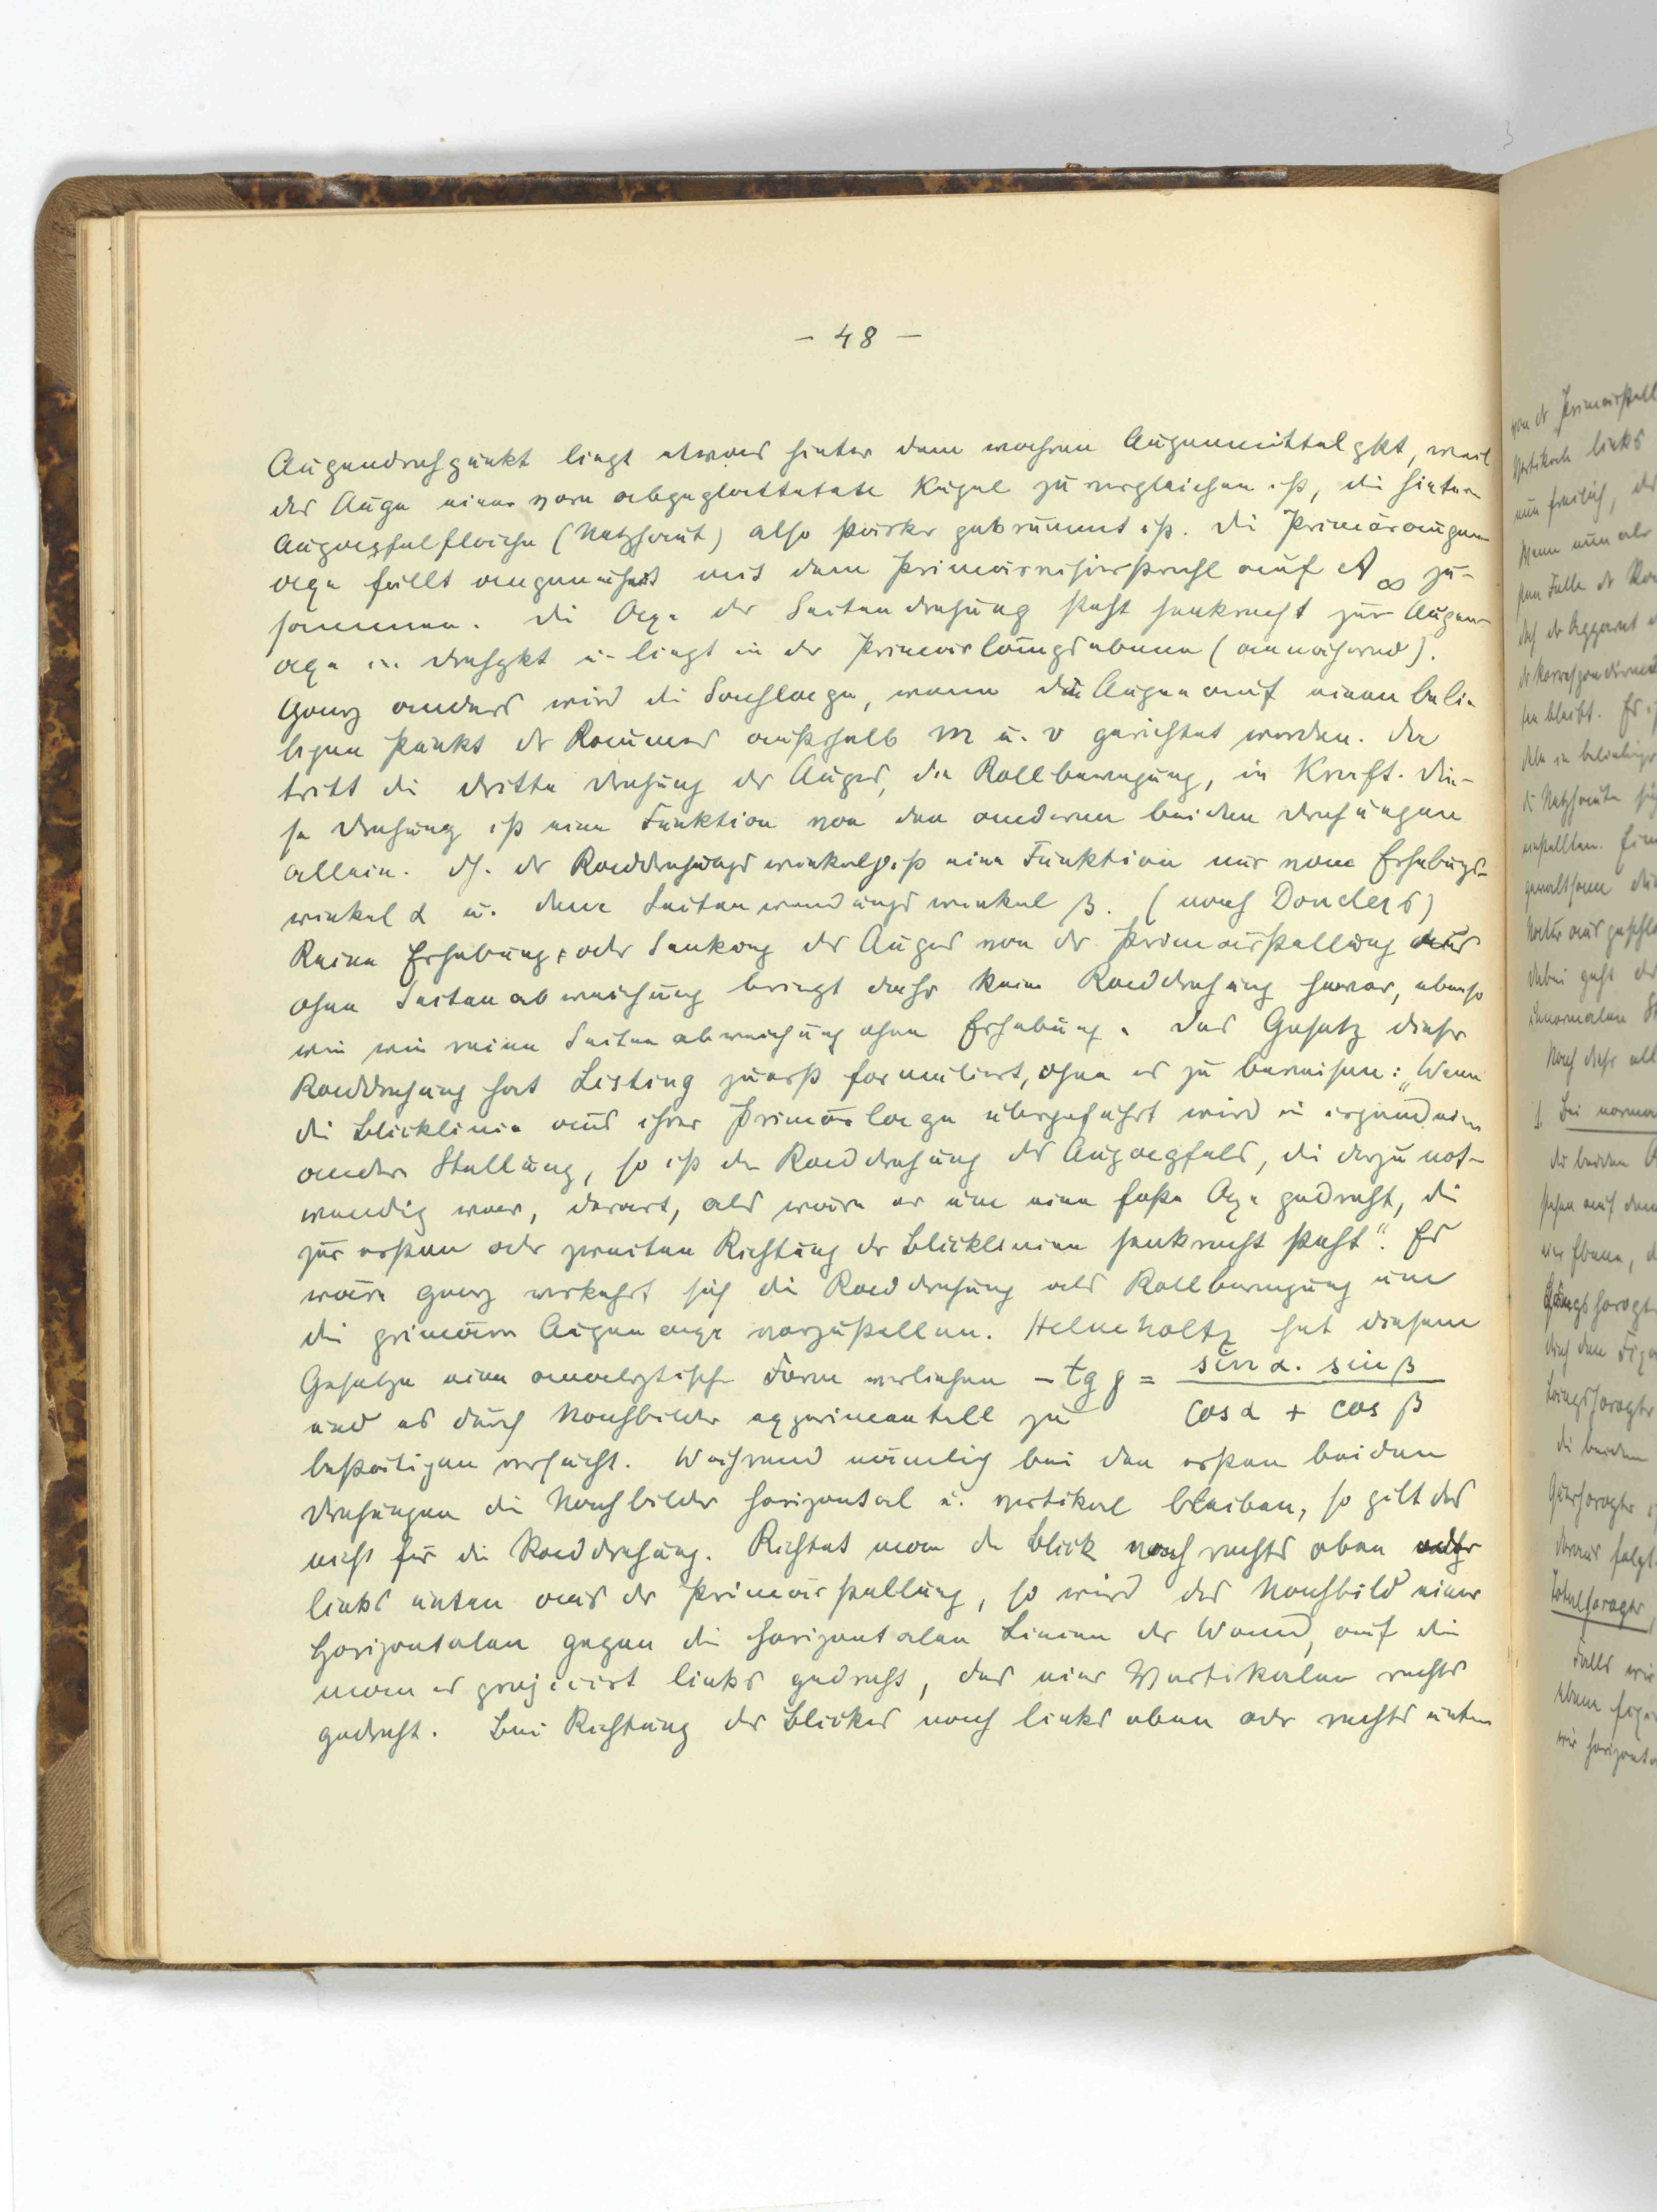 - 48 -
Augendrehpunkt liegt etwas hinter dem wahren Augenmittelpkt, weil
das Auge einer vorn abgeplatteten Kugel zu vergleichen ist, die hintere
Augapfelfläche (Netzhaut) also stärker gekrümmt ist. Die Primäraugen-
axe fällt angenähert mit dem Primärvisierstrahl auf A∞ zu-
sammen. Die Axe der Seitendrehung steht senkrecht zur Augen-
axe im Drehpkt u. liegt in der Primärlängsebene (annähernd).
Ganz anders wird die Sachlage, wenn die Augen auf einen belie-
bigen Punkt des Raumes außerhalb m u. v gerichtet werden. Da
tritt die dritte Drehung des Auges, die Rollbewegung, in Kraft. Die-
se Drehung ist eine Funktion von den anderen beiden Drehungen
allein. dh. der Raddrehungswinkel γ ist eine Funktion nur vom Erhebungs-
winkel α u. dem Seitenwendungswinkel β. (nach Donders)
Reine Erhebung oder Senkung des Auges von der Primärstellung aus
ohne Seitenabweichung bringt daher keine Raddrehung hervor, ebenso
wie wie reine Seitenabweichung ohne Erhebung. Das Gesetz dieser
Raddrehung hat Listing zuerst formuliert, ohne es zu beweisen: „Wenn
die Blicklinie aus ihrer Primärlage übergeführt wird in irgend eine
andere Stellung, so ist die Raddrehung des Augapfels, die dazu not-
wendig war, derart, als wäre er um eine feste Axe gedreht, die
zur ersten oder zweiten Richtung der Blicklinien senkrecht steht“. Es
wäre ganz verkehrt sich die Raddrehung als Rollbewegung um
die primäre Augenaxe vorzustellen. Helmholtz hat diesem
Gesetze eine analytische Form verliehen - tg γ = sin α. sin β / cos α + cos β
und es durch Nachbilder experimentell zu
bestätigen versucht. Während nämlich bei den ersten beiden
Drehungen die Nachbilder horizontal u. vertikal bleiben, so gilt das
nicht für die Raddrehung. Richtet man den Blick nach rechts oben oder
links unten aus der Primärstellung, so wird das Nachbild einer
Horizontalen gegen die horizontalen Linien der Wand, auf die
man es projiciert links gedreht, das einer Vertikalen rechts
gedreht. Bei Richtung des Blickes nach links oben oder rechts unten